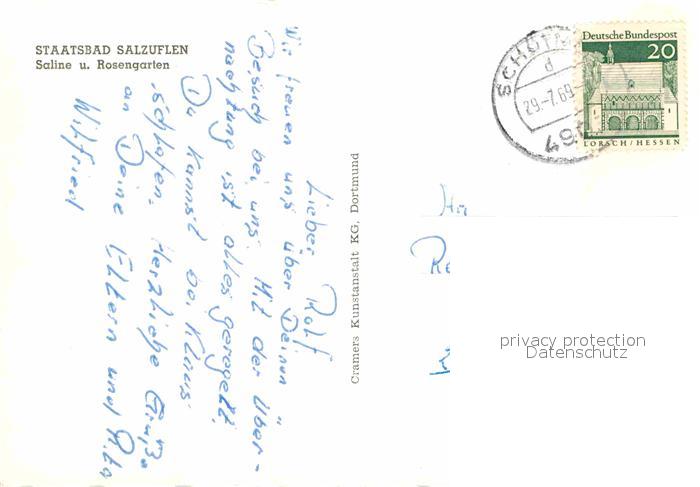 STAATSBAD SALZUFLEN
Saline u. Rosengarten
Lieber Rolf
Wir freuen uns über Deinen
Besuch bei uns. Mit der Über-
nachtung ist alles geregelt.
Du kannst bei Klaus
schlafen. Herzliche Grüße
an Deine Eltern und
Wilfried
Cramers Kunstanstalt KG, Dortmund
SCHÖTM
d
29.-7.69
494
Deutsche Bundespost
20
LORSCH/HESSEN
privacy protection
Datenschutz